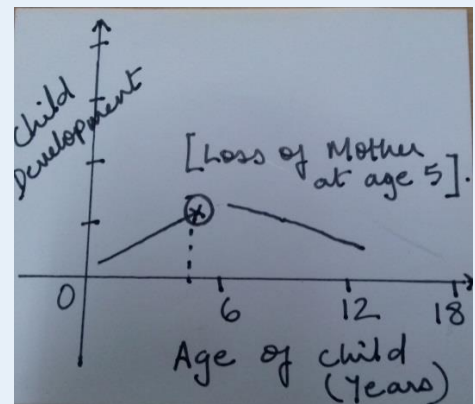 Child
Development
[Loss of Mother
at age 5].
x
0
6
12
18
Age of child
(Years)